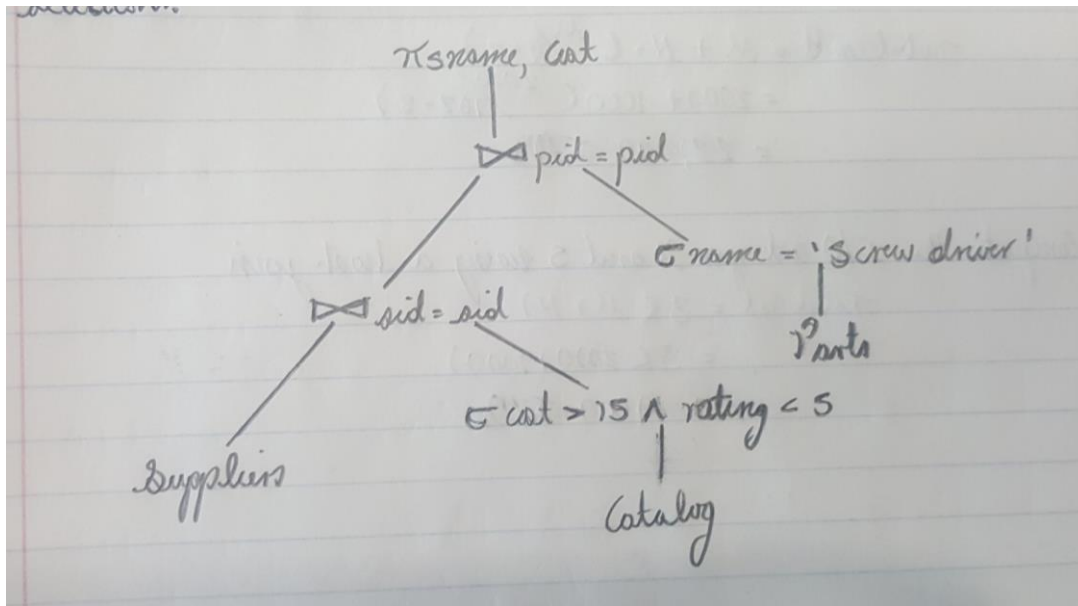 π sname, cost
⋈ pid = pid
σ name = 'Screw driver'
⋈ sid = sid
Parts
σ cost > 15 ∧ rating < 5
Suppliers
Catalog